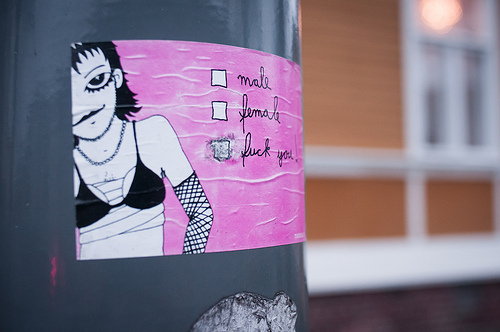 male
female
fuck you!